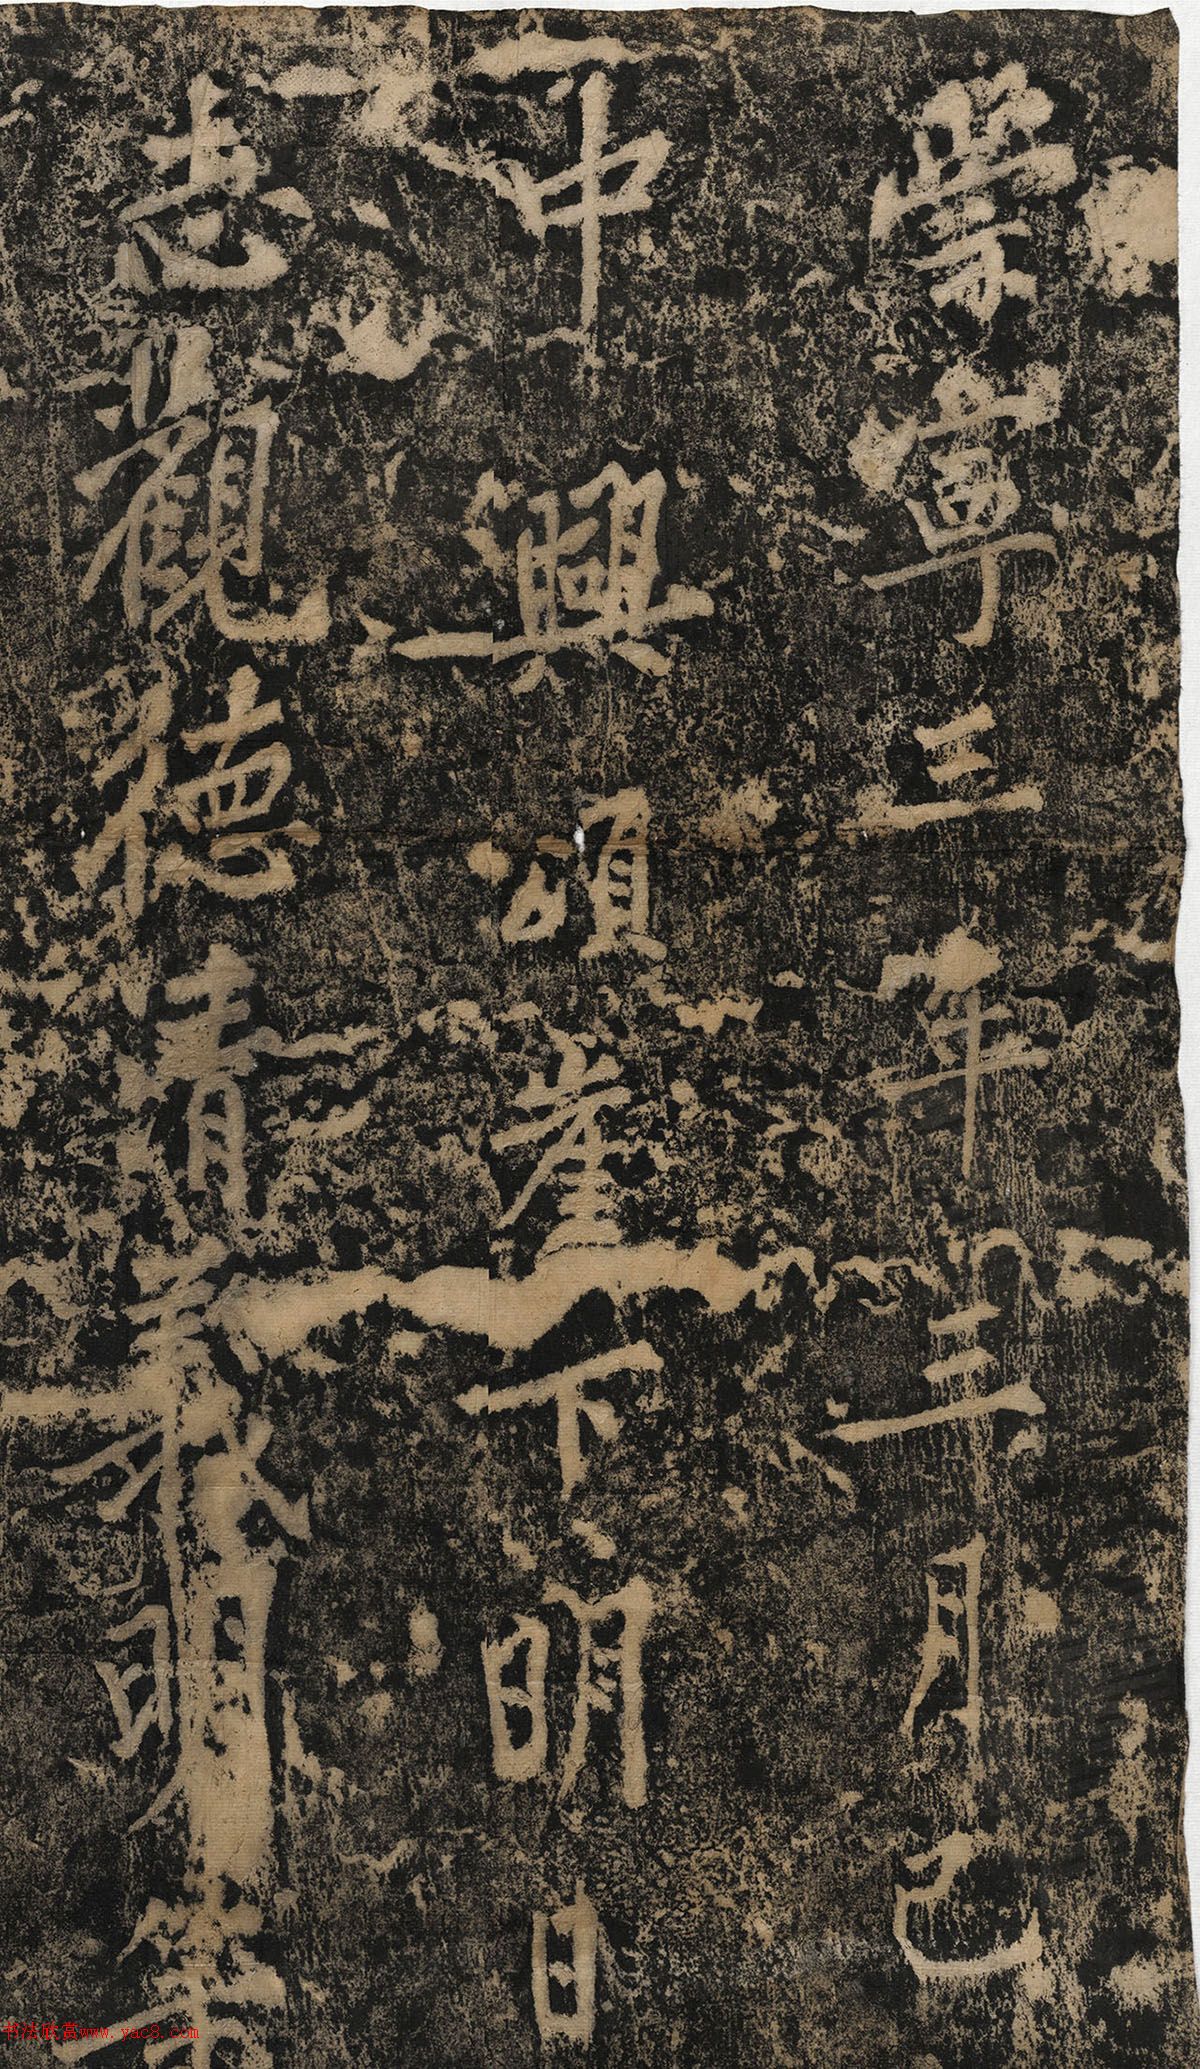 崇寧三年三月己
中興頌崖下明日
志觀德清義明等
书法欣赏www.yac8.com